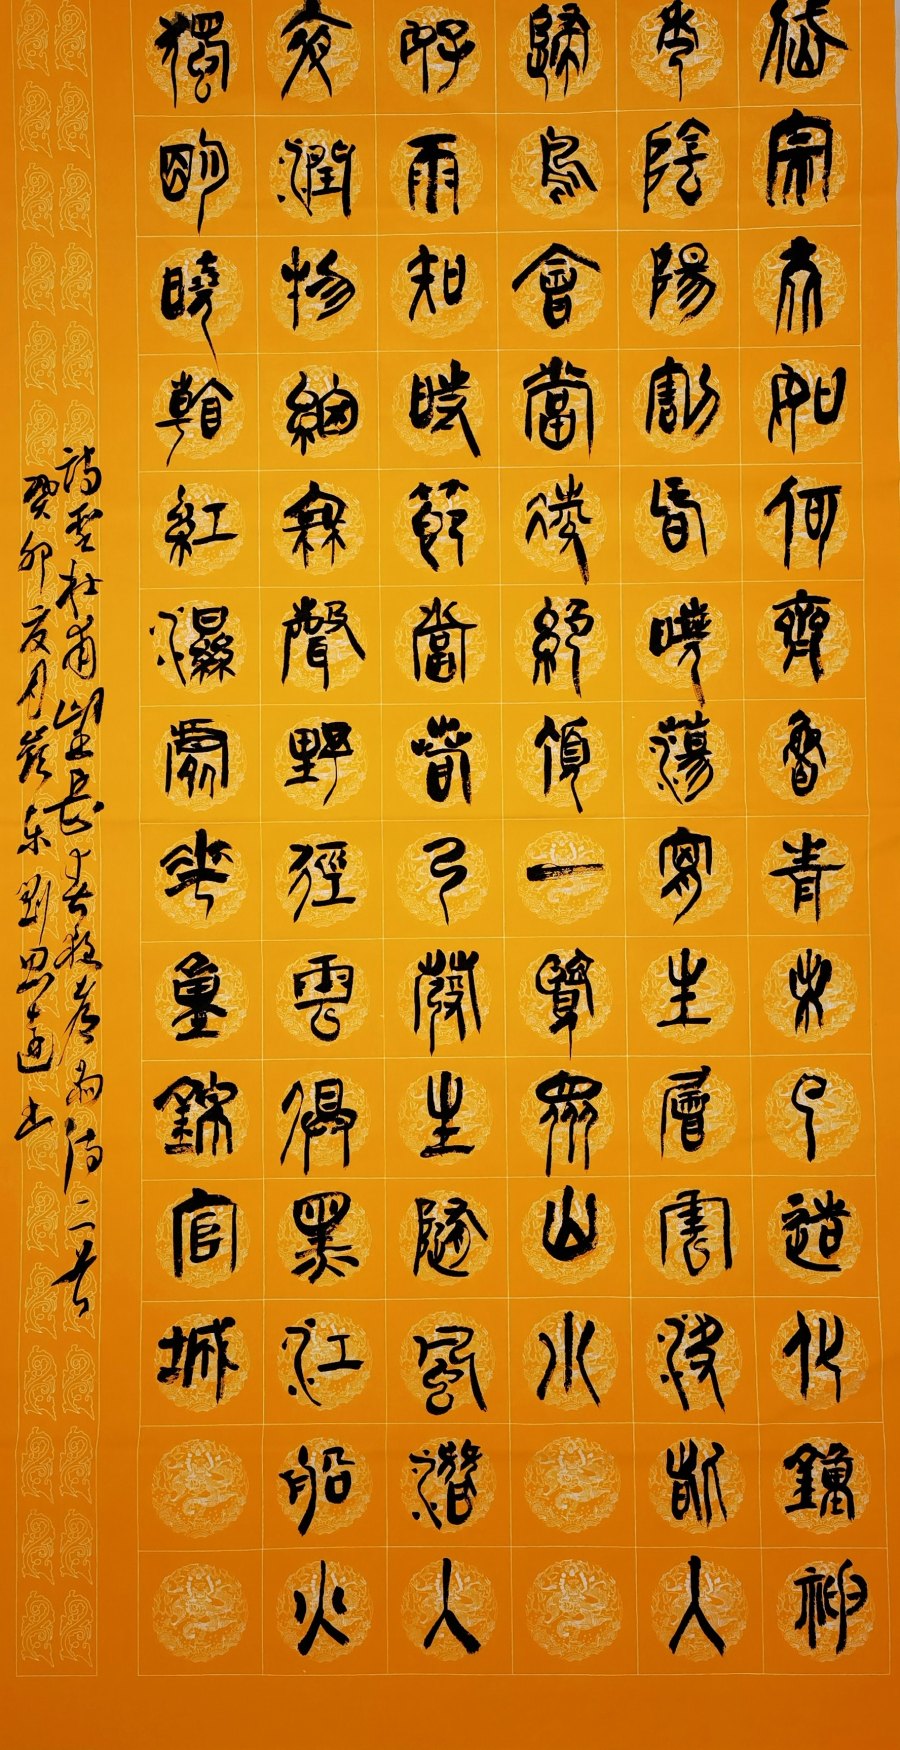 岱宗夫如何齊魯青未了造化鍾神
秀陰陽割昏曉蕩胸生層雲決眥入
歸鳥會當凌絕頂一覽眾山小
好雨知時節當春乃發生隨風潛入
夜潤物細無聲野徑雲俱黑江船火
獨明曉看紅濕處花重錦官城
詩聖杜甫望岳春夜喜雨诗二首
癸卯夏月东劉思通书